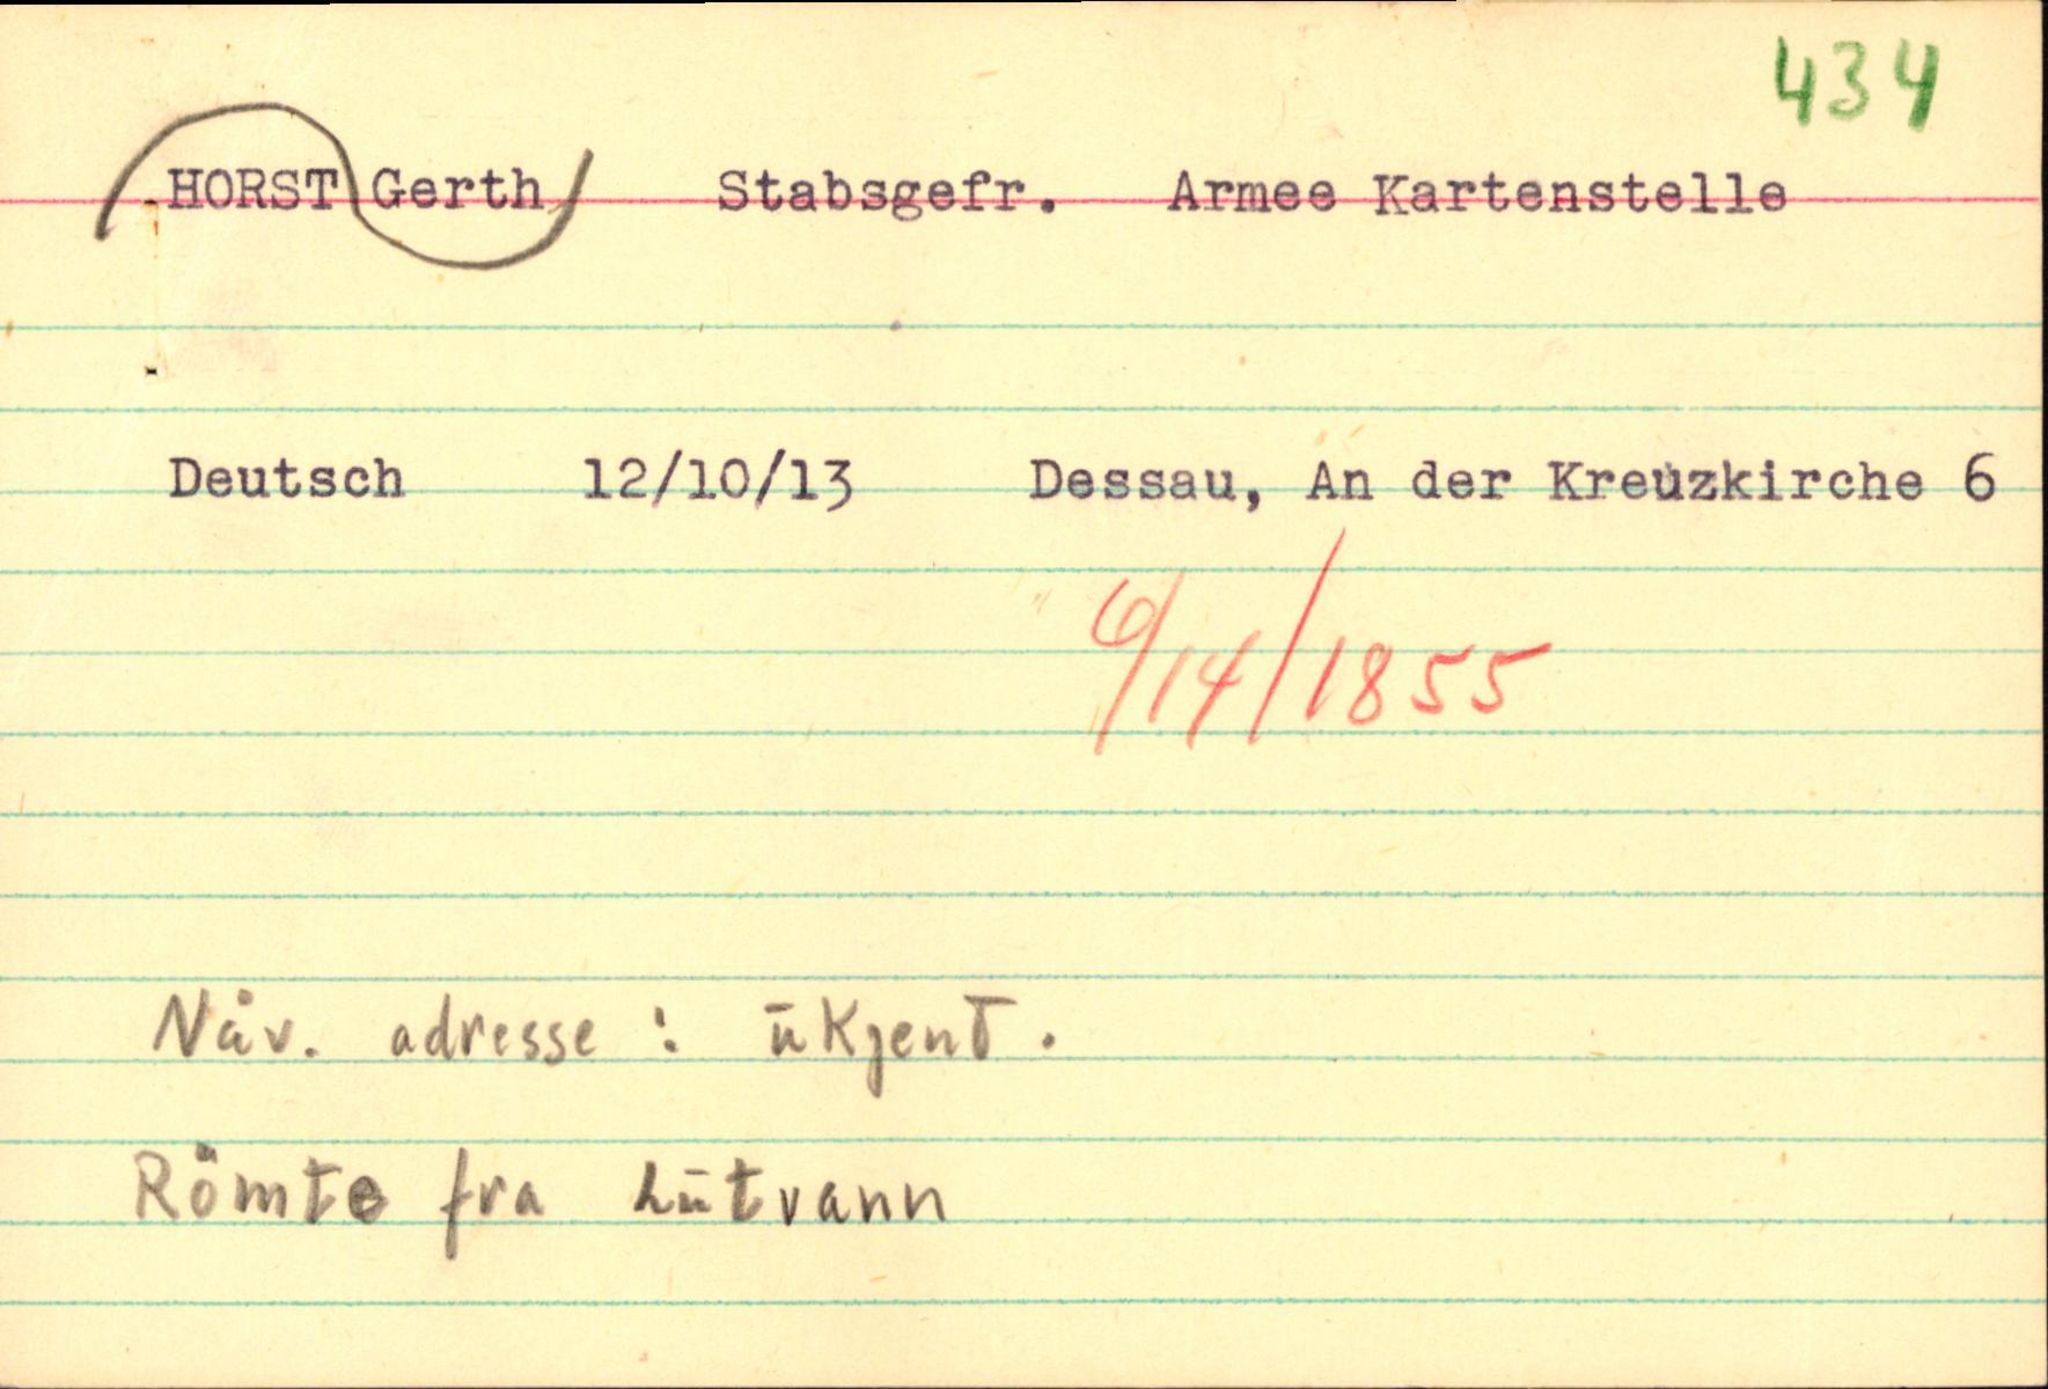 434
HORST Gerth Stabsgefr. Armee Kartenstelle
Deutsch 12/10/13 Dessau, An der Kreuzkirche 6
6/14/1855
Nåv. adresse : ūkjent.
Römte fra Lūtvann